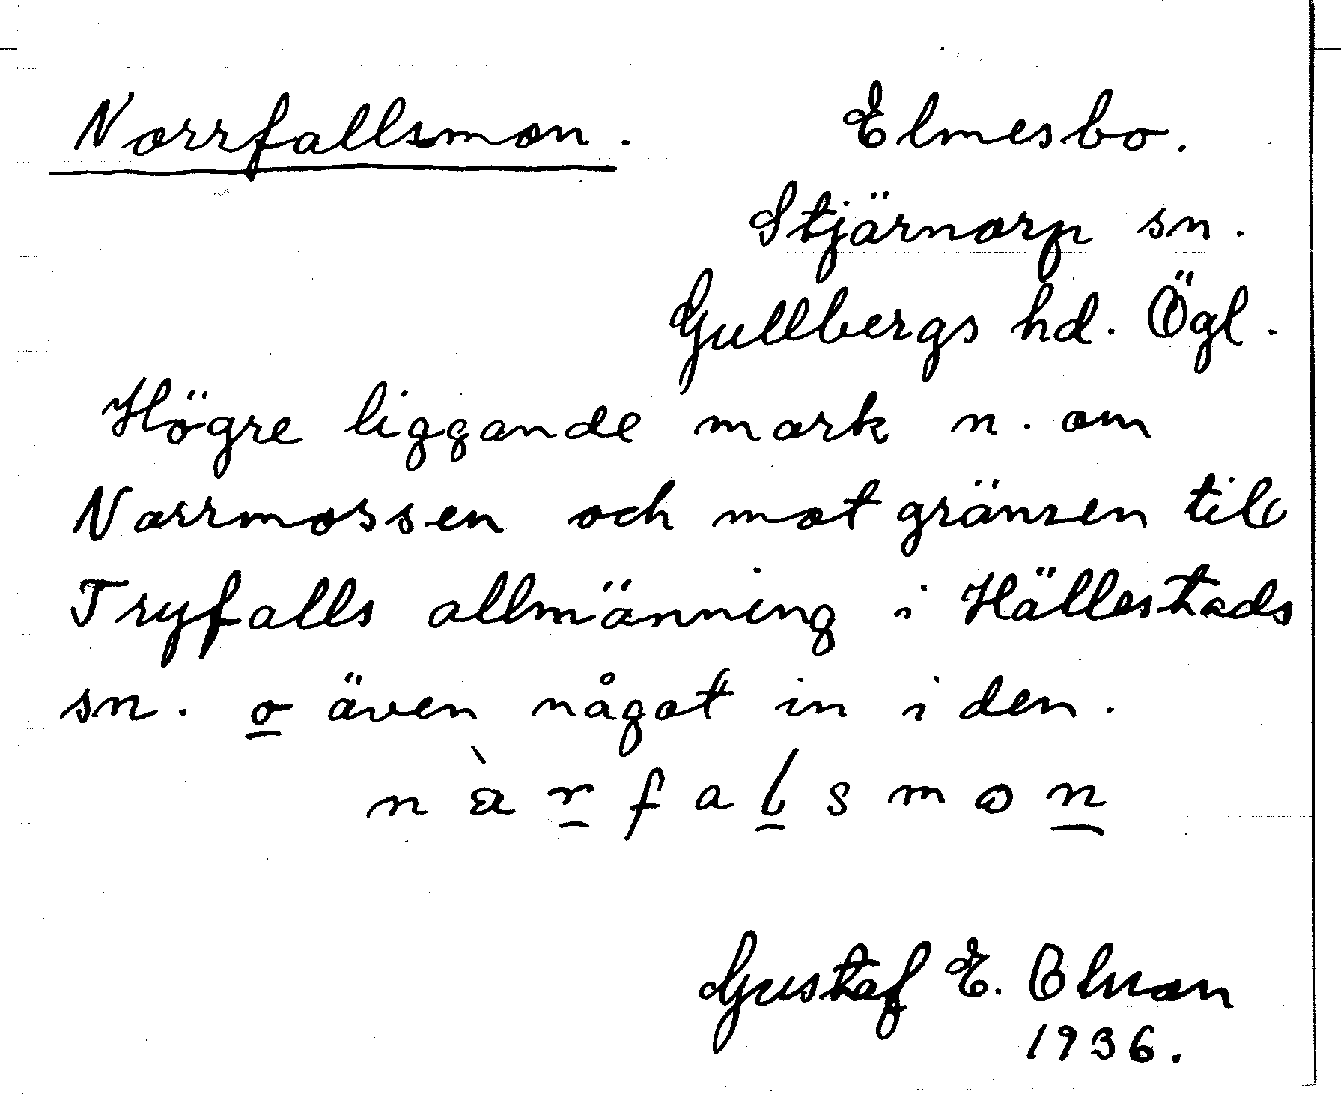 Norrfallsmon. Elmesbo.
Stjärnorp sn.
Gullbergs hd. Ögl.
Högre liggande mark n. om
Norrmossen och mot gränsen till
Tryfalls allmänning i Hällestads
sn. o även något in i den.
nàrfalsmon
Gustaf E. Olson
1936.